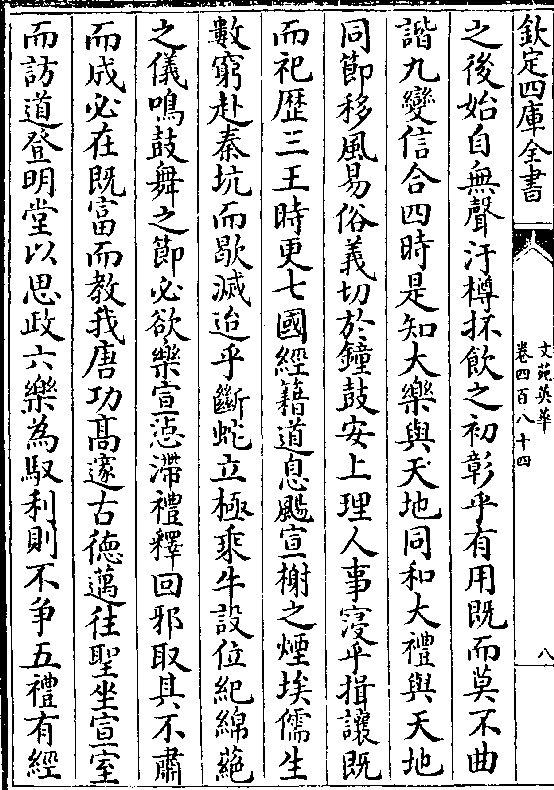 欽定四庫全書
文苑英華
卷四百八十四
八
之後始自無聲汙樽抔飲之初彰乎有用既而莫不曲
諧九變信合四時是知大樂與天地同和大禮與天地
同節移風易俗義切於鐘鼓安上理人事寖乎揖讓既
而祀歴三王時更七國經籍道息颺宣榭之煙埃儒生
數窮赴秦坑而歇滅迨乎斷蛇立極乘牛設位紀綿蕝
之儀鳴鼓舞之節必欲樂宣惉滯禮釋回邪取具不肅
而成必在既富而教我唐功髙邃古徳邁往聖坐宣室
而訪道登明堂以思政六樂為馭利則不争五禮有經